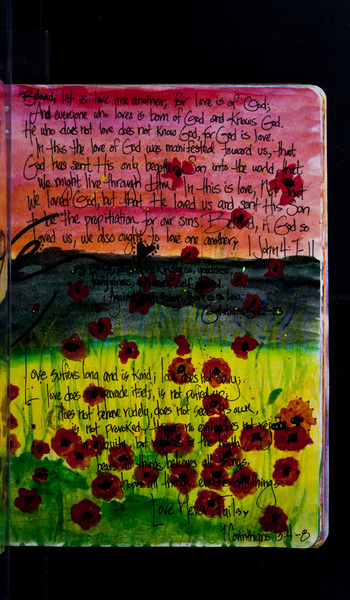 Beloved, let us love one another, for love is of God;
And everyone who loves is born of God and knows God.
He who does not love does not know God, for God is love.
In this the love of God was manifested toward us, that
God has sent His only begotten Son into the world, that
we might live through Him. In this is love, Not that
we loved God, but that He loved us and sent His Son
to be the propitiation for our sins. Beloved, if God so
loved us, we also ought to love one another. 1 John 4:7-11
kindness, goodness,
faithfulness,
Against such things there is no law.
Galatians 5:22-23
Love suffers long and is Kind; love does not envy;
Love does not parade itself, is not puffed up;
does not behave rudely, does not seek its own,
is not provoked, thinks no evil; does not rejoice
in iniquity, but rejoices in the truth;
bears all things, believes all things,
hopes all things, endures all things.
Love Never Fails.
1 Corinthians 13:4-8